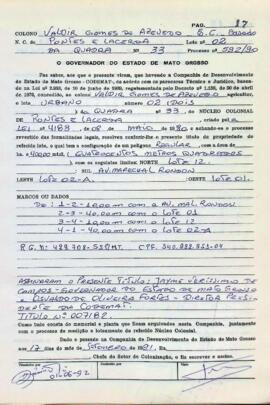 PAG. 17
COLONO VALDIR GOMES DE AZEVEDO
N. C. de PONTES E LACERDA LOTE 02
DA QUADRA 33 Processo nº 592/90
O GOVERNADOR DO ESTADO DE MATO GROSSO
Faz saber, aos que o presente virem, que havendo a Companhia de Desenvolvimento
do Estado de Mato Grosso - CODEMAT, de acordo com os pareceres Técnico e Jurídico, basea-
de 1970, concedido ao colono VALDIR GOMES DE AZEVEDO, agricultor,
o lote URBANO número 02 (DOIS)
DA QUADRA Nº 33, DO NÚCLEO COLONIAL
DE PONTES E LACERDA, criado pela
LEI 4183 de 08 de MAIO 80 e estando-se o processo
revestido das formalidades legais, resolveu conferir-lhe o presente título de propriedade do
referido lote, o qual tem a configuração de um polígono REGULAR, com a área de
400,00 m² (QUATROCENTOS METROS QUADRADOS
e os seguintes limites: NORTE LOTE 12.
SUL AV. MARECHAL RONDON
LESTE LOTE 02-A OESTE LOTE 01.
MARCOS OU RADOS
DE: 1-2- 10,00 m COM A AV. MAL. RONDON
2-3- 40,00 m COM O LOTE 01
3-4- 10,00 m COM O LOTE 12
4-1- 40,00 m COM O LOTE
ASSINARAM O PRESENTE TITULO: JAYME VERISSIMO DE
CAMPOS - GOVERNADOR DO ESTADO DE MATO GROSSO
E OSVALDO DE OLIVEIRA FORTES - DIRETOR PRESI-
DENTE DA CODEMAT.
TITULO Nº 007182.
Tudo como consta do memorial e planta que ficam arquivados nesta Companhia, juntamente
com o processo de medição e loteamento do referido Núcleo Colonial.
Dado e passado na Companhia de Desenvolvimento do Estado de Mato Grosso
aos 17 dias do mês de SETEMBRO de 1991.
Chefe do Setor de Colonização, o fiz escrever e assino.